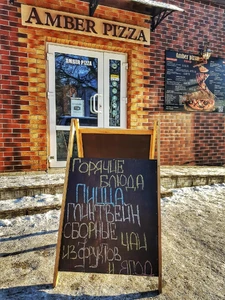 AMBER PIZZA
AMBER PIZZA
AMBER PIZZA
ГОРЯЧИЕ
БЛЮДА
ПИЦЦА
ГЛИНТВЕЙН
СБОРНЫЕ ЧАИ
ИЗ ФРУКТОВ
И ЯГОД